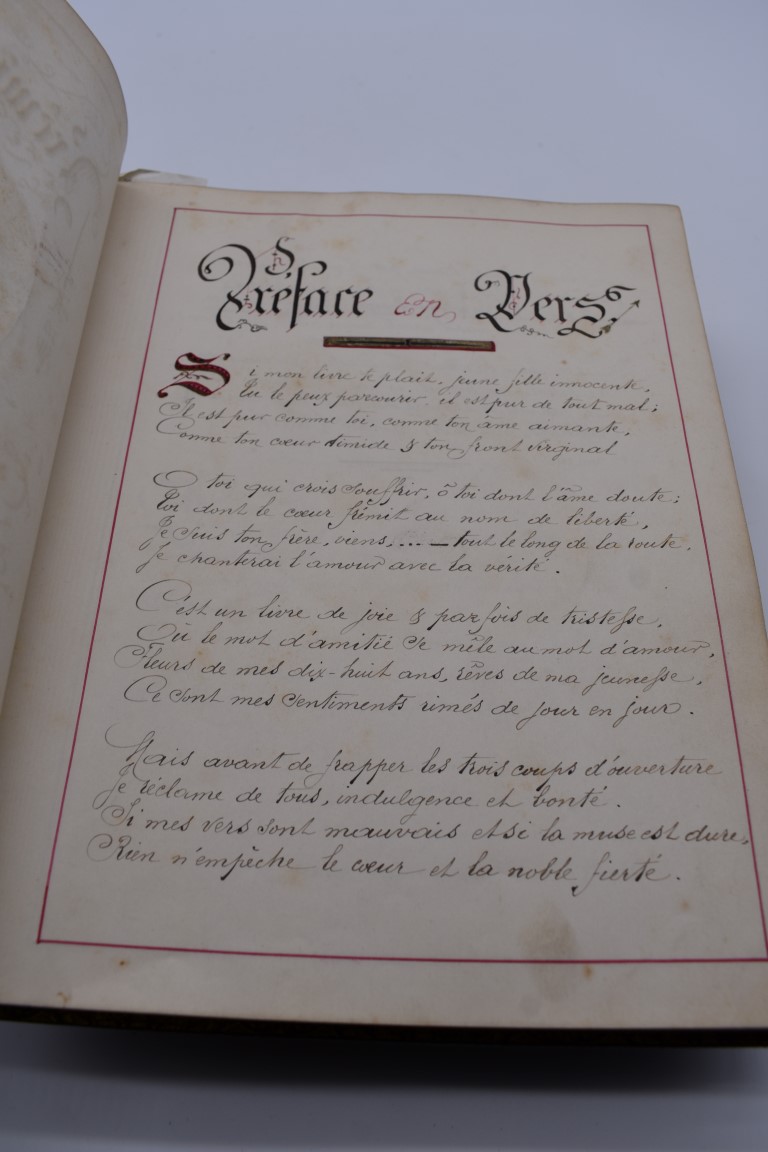 Préface en Vers
Si mon livre te plait, jeune fille innocente,
Tu le peux parcourir, il est pur de tout mal ;
Il est pur comme toi, comme ton âme aimante,
Comme ton cœur timide & ton front virginal
O toi qui crois souffrir, ô toi dont l'âme doute ;
Toi dont le cœur frémit au nom de liberté,
Je suis ton frère, viens, ... — tout le long de la route,
Je chanterai l'amour avec la vérité.
C'est un livre de joie & parfois de tristesse,
Où le mot d'amitié se mêle au mot d'amour,
Fleurs de mes dix-huit ans, rêves de ma jeunesse,
Ce sont mes sentiments rimés de jour en jour.
Mais avant de frapper les trois coups d'ouverture
Je réclame de tous, indulgence et bonté.
Si mes vers sont mauvais et si la muse est dure,
Rien n'empêche le cœur et la noble fierté.